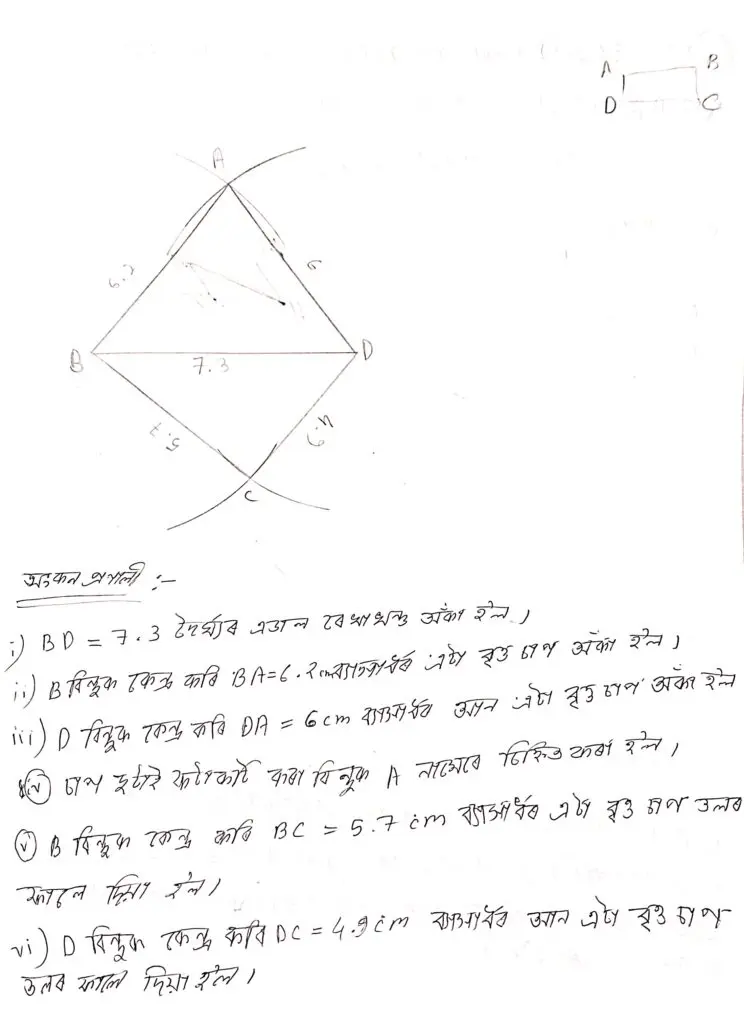 A B
D C
A
6.2 6
B 7.3 D
5.7 4.9
C
অংকন প্ৰণালী :-
i) BD = 7.3 দৈৰ্ঘ্যৰ এডাল ৰেখাখণ্ড অঁকা হ'ল।
ii) B বিন্দুক কেন্দ্ৰ কৰি BA=6.2cm ব্যাসাৰ্ধৰ এটা বৃত্ত চাপ অঁকা হ'ল।
iii) D বিন্দুক কেন্দ্ৰ কৰি DA = 6cm ব্যাসাৰ্ধৰ আন এটা বৃত্ত চাপ অঁকা হ'ল
iv) চাপ দুটাই কটাকটি কৰা বিন্দুক A নামেৰে চিহ্নিত কৰা হ'ল।
v) B বিন্দুক কেন্দ্ৰ কৰি BC = 5.7 cm ব্যাসাৰ্ধৰ এটা বৃত্ত চাপ তলৰ
ফালে দিয়া হ'ল।
vi) D বিন্দুক কেন্দ্ৰ কৰি DC = 4.9cm ব্যাসাৰ্ধৰ আন এটা বৃত্ত চাপ
তলৰ ফালে দিয়া হ'ল।